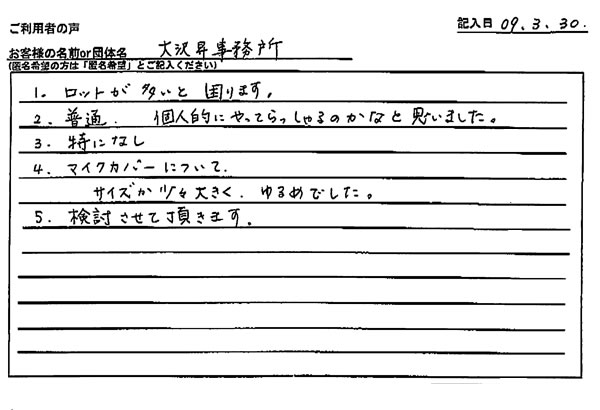 ご利用者の声
記入日 09.3.30.
お客様の名前or団体名 大沢昇事務所
(匿名希望の方は「匿名希望」とご記入ください)
1. ロットが多いと困ります。
2. 普通. 個人的にやってらっしゃるのかなと思いました。
3. 特になし
4. マイクカバーについて.
サイズが少々大きく. ゆるめでした。
5. 検討させて頂きます.